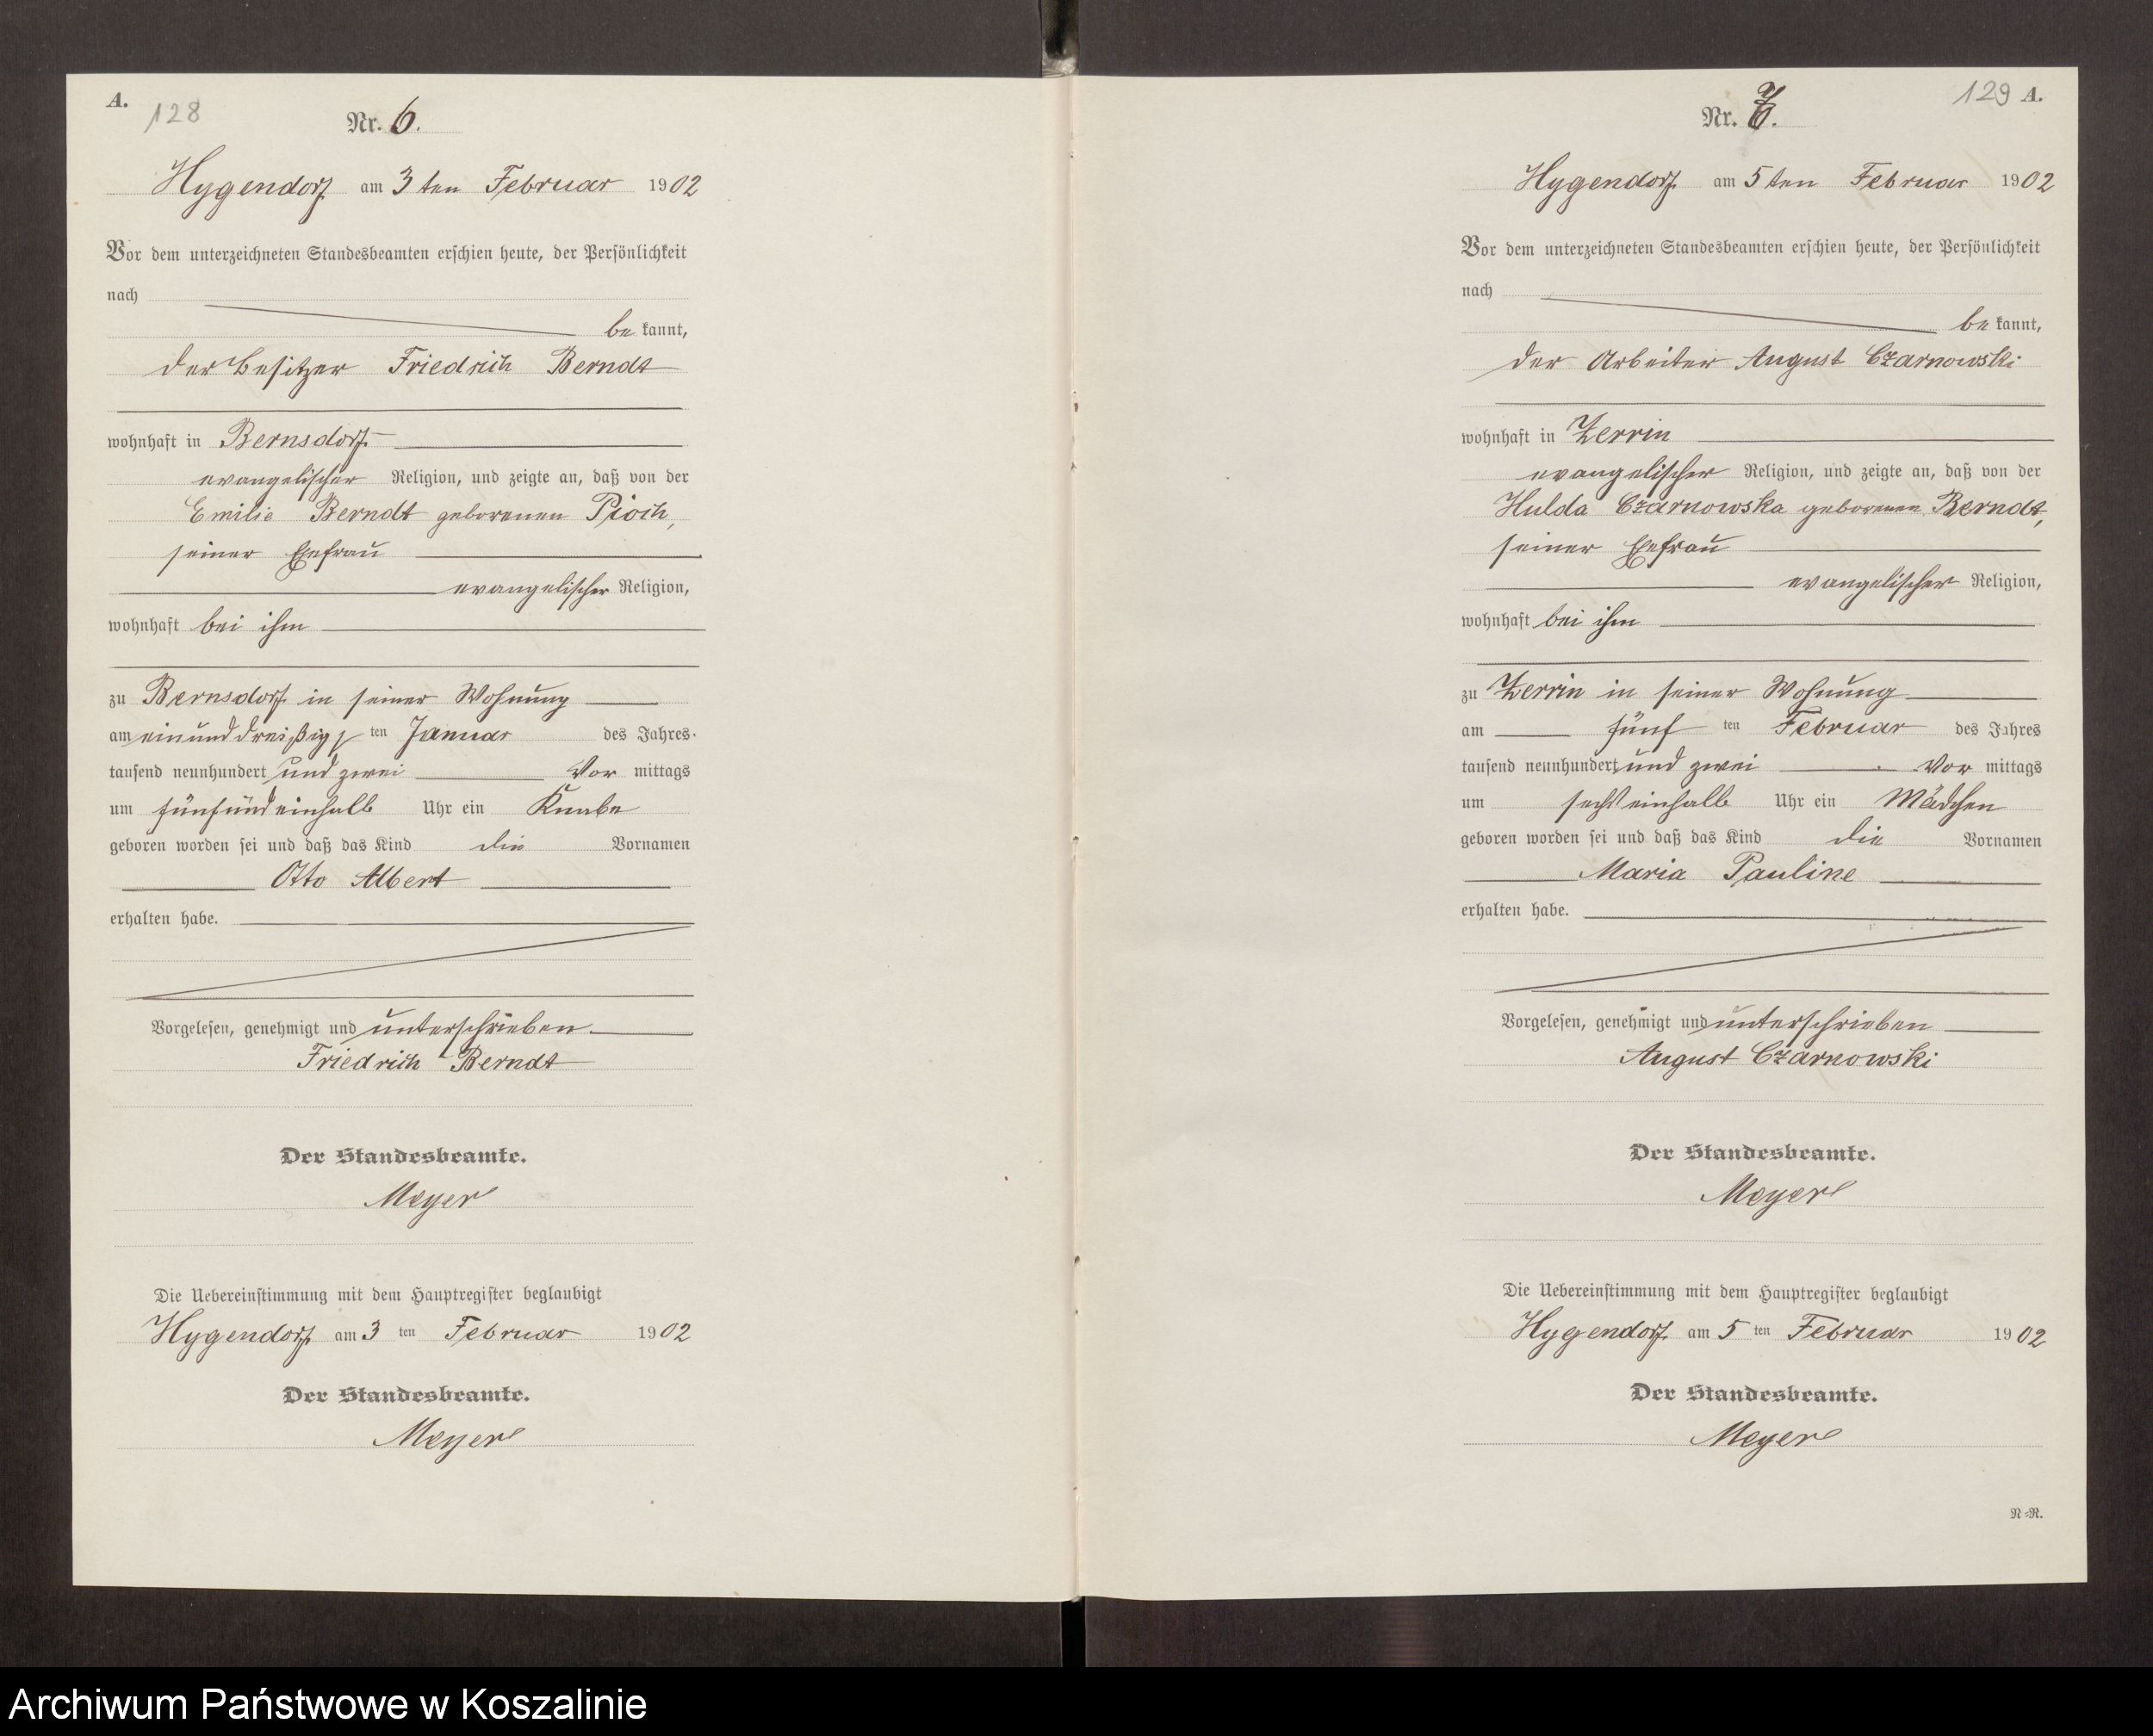 A.
128
Nr. 6.
Hygendorf am 3ten Februar 1902
Vor dem unterzeichneten Standesbeamten erschien heute, der Persönlichkeit
nach
be kannt,
der Besitzer Friedrich Berndt
wohnhaft in Bernsdorf
evangelischer Religion, und zeigte an, daß von der
Emilie Berndt geborenen Pioch,
seiner Ehefrau
evangelischer Religion,
wohnhaft bei ihm
zu Bernsdorf in seiner Wohnung
am einunddreißig ten Januar des Jahres
tausend neunhundert und zwei Vor mittags
um fünfundeinhalb Uhr ein Knabe
geboren worden sei und daß das Kind die Vornamen
Otto Albert
erhalten habe.
Vorgelesen, genehmigt und unterschrieben
Friedrich Berndt
Der Standesbeamte.
Meyer
Die Uebereinstimmung mit dem Hauptregister beglaubigt
Hygendorf am 3 ten Februar 1902
Der Standesbeamte.
Meyer
129 A.
Nr. 7.
Hygendorf am 5ten Februar 1902
Vor dem unterzeichneten Standesbeamten erschien heute, der Persönlichkeit
nach
be kannt,
der Arbeiter August Czarnowski
wohnhaft in Zerrin
evangelischer Religion, und zeigte an, daß von der
Hulda Czarnowska geborenen Berndt,
seiner Ehefrau
evangelischer Religion,
wohnhaft bei ihm
zu Zerrin in seiner Wohnung
am fünf ten Februar des Jahres
tausend neunhundert und zwei Vor mittags
um sechseinhalb Uhr ein Mädchen
geboren worden sei und daß das Kind die Vornamen
Maria Pauline
erhalten habe.
Vorgelesen, genehmigt und unterschrieben
August Czarnowski
Der Standesbeamte.
Meyer
Die Uebereinstimmung mit dem Hauptregister beglaubigt
Hygendorf am 5 ten Februar 1902
Der Standesbeamte.
Meyer
N=R.
Archiwum Państwowe w Koszalinie